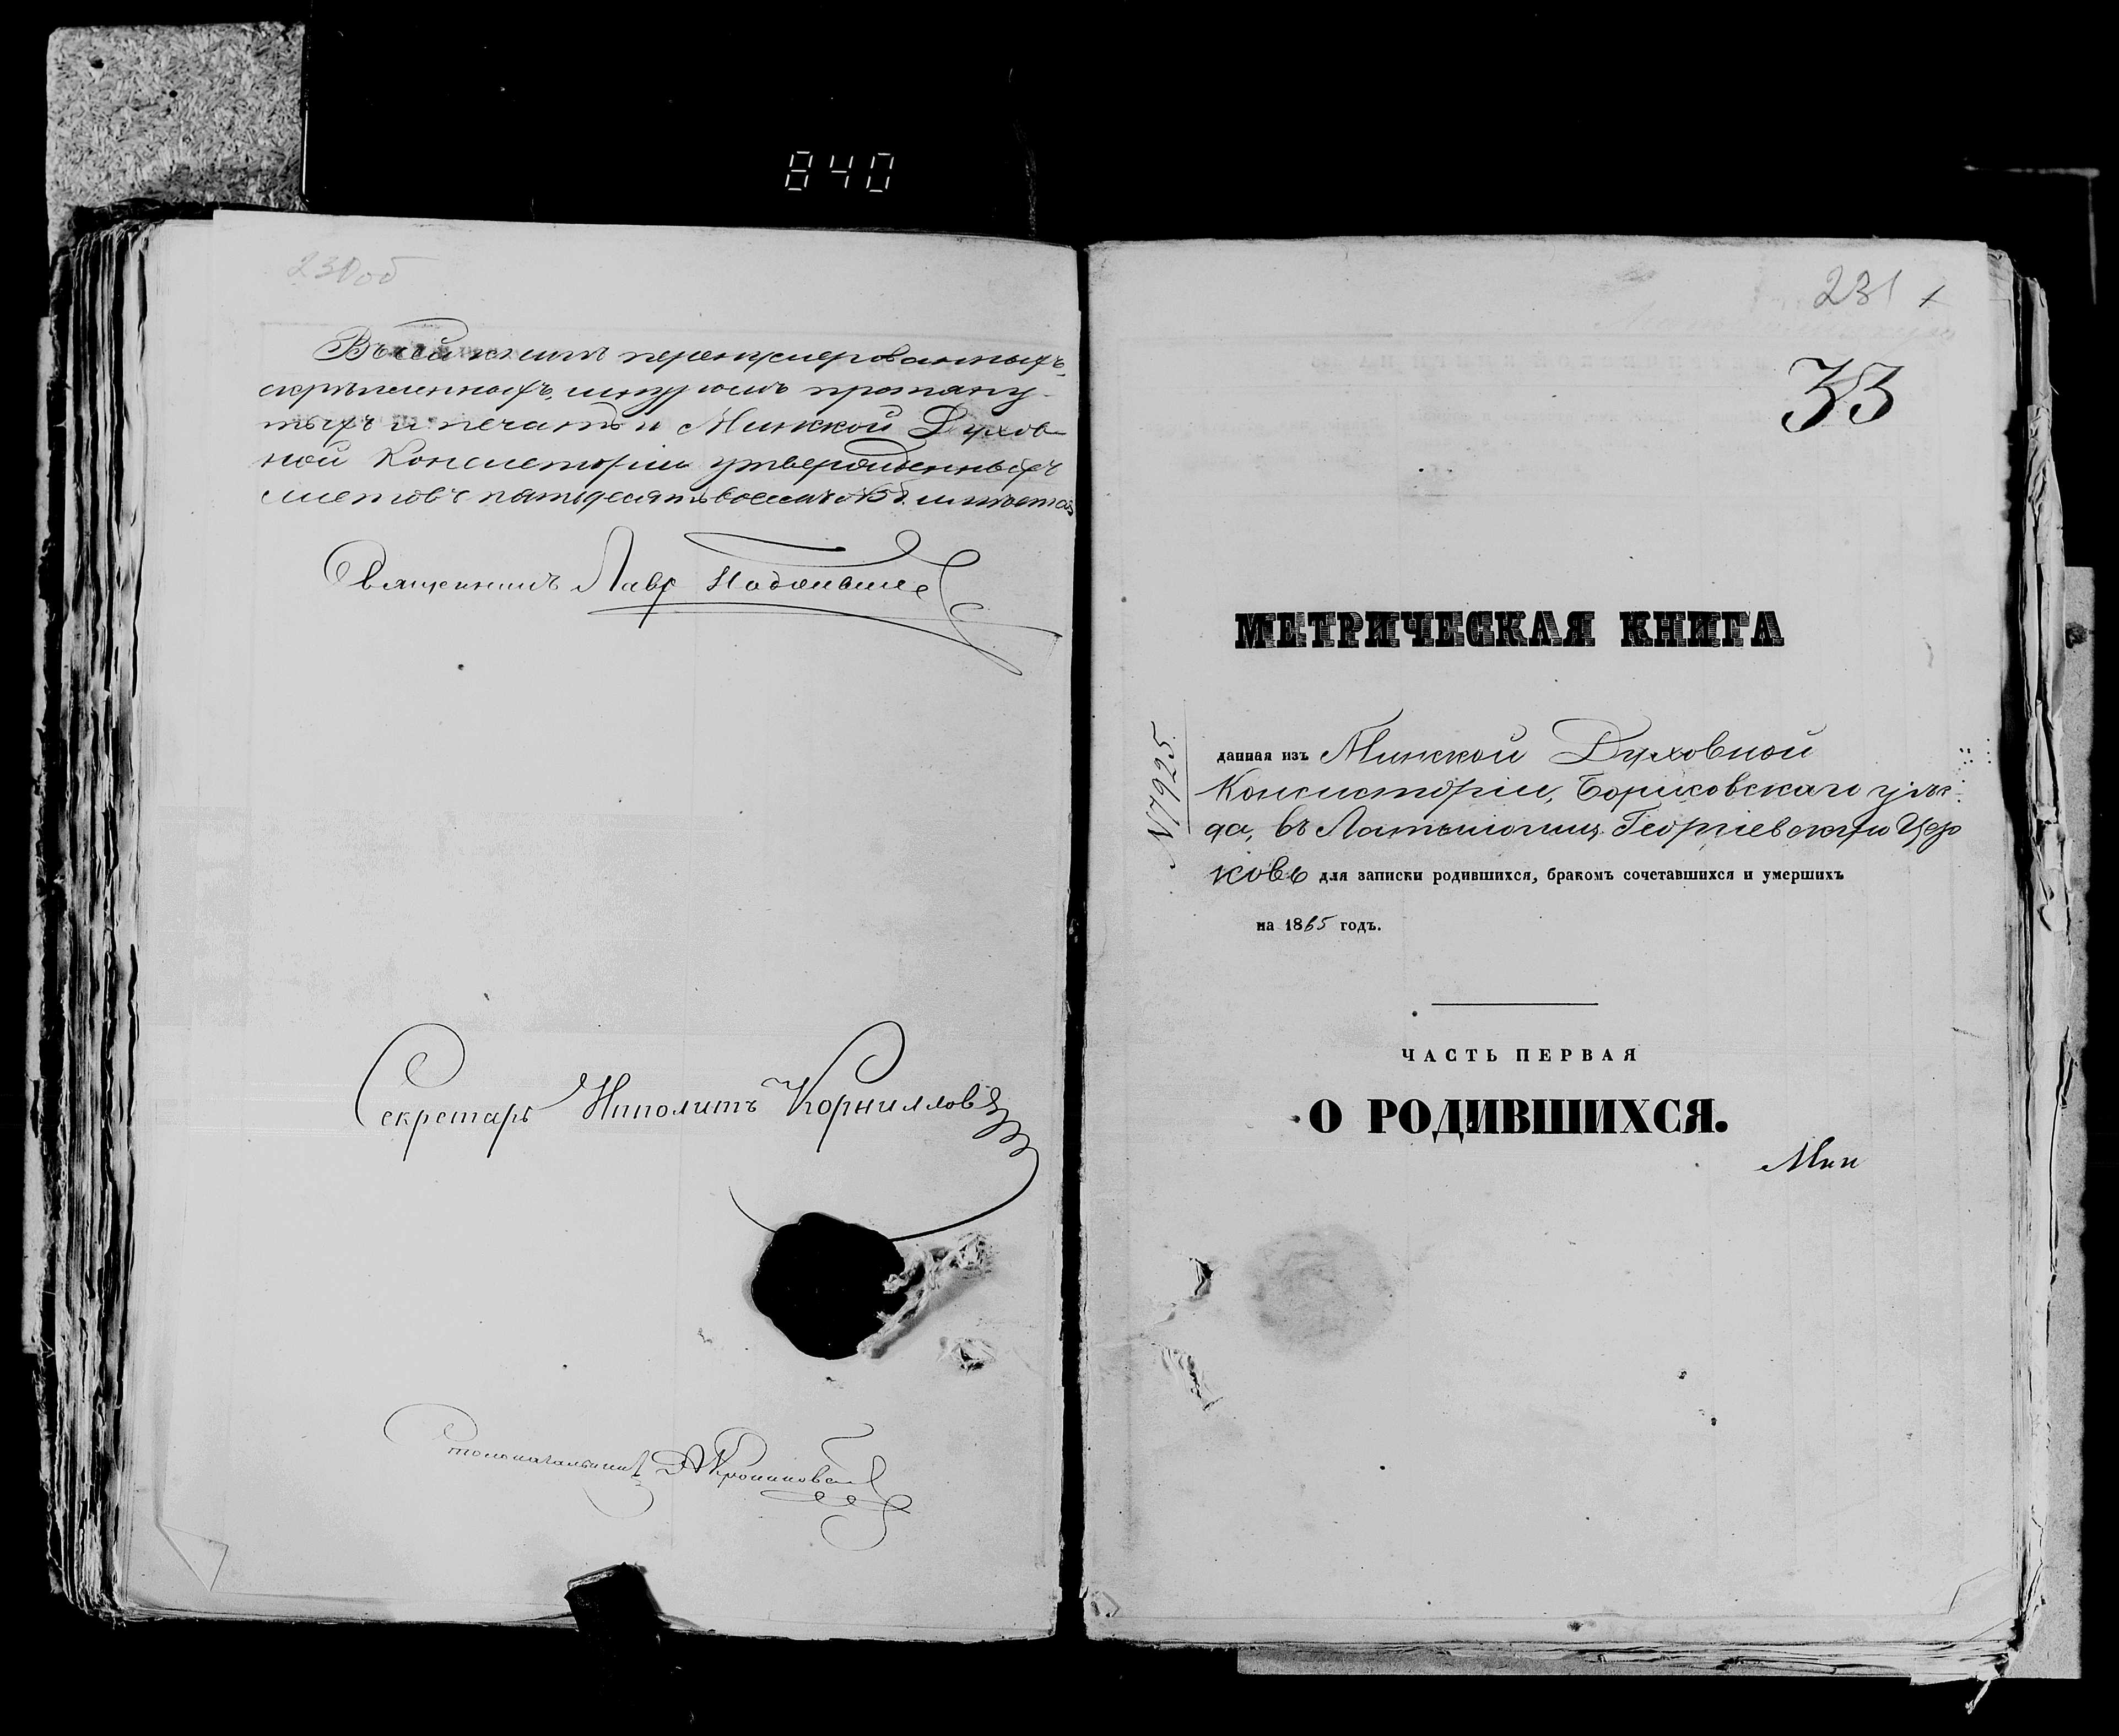 840
230об
Въ сей книгѣ перенумерованныхъ,
скрѣпленныхъ, шнуромъ протяну-
тыхъ и печатью Минской Духов-
ной Консисторіи утвержденныхъ
листовъ пятьдесятъ восемь
Священникъ Лавр
Секретарь Иполитъ Корниллов
Столоначальникъ
231
33
МЕТРИЧЕСКАЯ КНИГА
N 7925
данная изъ Минской Духовной
Консисторіи, Борисовскаго уѣз-
да, въ Георгіевскую Цер
ковь для записки родившихся, бракомъ сочетавшихся и умершихъ
на 1865 годъ.
ЧАСТЬ ПЕРВАЯ
О РОДИВШИХСЯ.
Мин